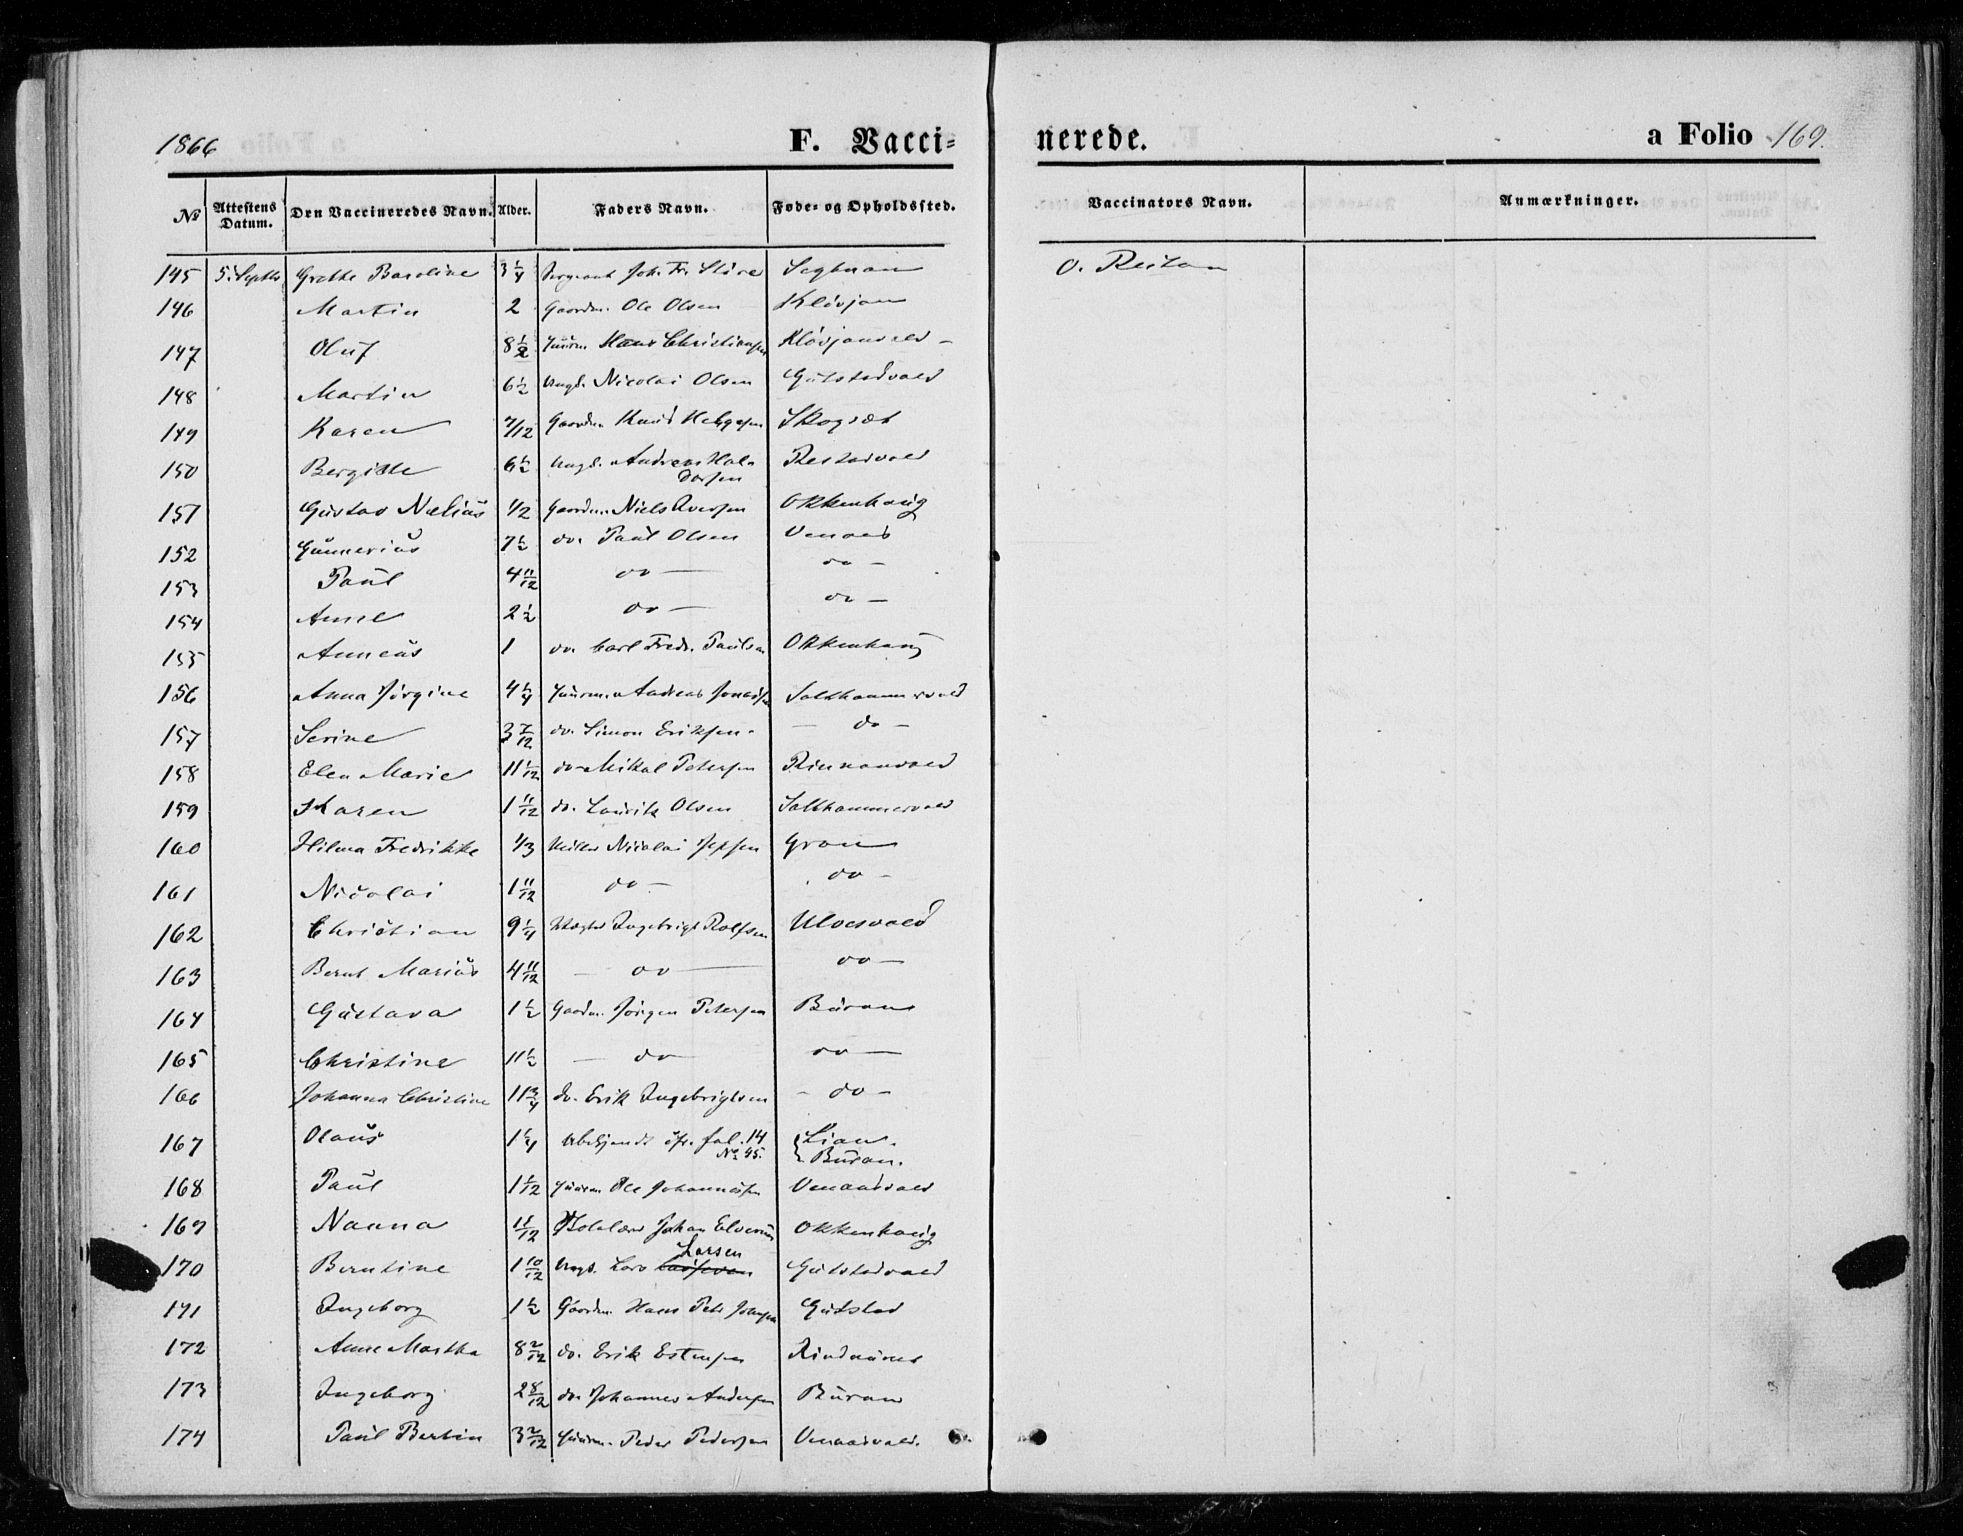 1866 F. Vacci= nerede. a Folio 169.
No Attestens Datum. Den Vaccineredes Navn. Alder. Faders Navn. Føde- og Opholdssted. Vaccinators Navn. Anmærkninger.
145 5. Septbr Grethe Baroline 3 1/4 Sergeant Joh. Fr. Støre O. Reitan
146 Martin 2 Gaardm. Ole Olsen Kløvjan
147 Oluf 8 1/2 Huusm. Hans Christiansen
148 Martin 6 1/2 Ungk. Nicolai Olsen Gutstadvald
149 Karen 7/12 Gaardm. Knud Helgesen Skogset
150 Bergitte 6 1/2 Ungk. Andreas Hal=
dorsen
151 Gustav Nælius 1/2 Gaardm. Niels Iversen Okkenhaug
152 Gunnerius 7 1/2 do. Paul Olsen Venaas
153 Paul 4 11/12 do — do —
154 Anne 2 1/2 do — do —
155 Anneus 1 do. Carl Fredr. Paulsen Okkenhaug
156 Anna Jørgine 4 1/4 Huusm. Andreas Salthammervald
157 Serine 3 7/12 do. Simon Eriksen. — do —
158 Elen Marie 11 1/12 do Mikal Petersen Rinnanvald
159 Karen 1 11/12 do. Laurits Olsen Salthammervald
160 Hilma Fredrikke 1/3 Nicolai Jepsen Gran
161 Nicolai 1 11/12 do — do —
162 Christian 9 1/4 Ingebrigt Rolfsen Ulvesvald
163 Bernt Marius 4 11/12 — do — do —
164 Gustava 1 1/2 Gaardm. Jørgen Petersen Buran
165 Christine 11 1/2 — do — do —
166 Johanna Christine 11 3/4 do. Erik Ingebrigtsen — do —
167 Olaus 1 1/4 Ubekjendt cfr. fol. 14 Lian.
No 45. Buran.
168 Paul 1 1/12 Huusm Ole Johannessen Venaasvald
169 Nanna 1/12 Johan Elverum Okkenhaug
Larsen
170 Berntine 1 10/12 Ungk. Lars Gutstadvald
171 Ingeborg 1 1/2 Gaardm. Hans Petr Gutstad
172 Anne Martha 8 2/12 do. Erik Estensen
173 Ingeborg 2 8/12 do. Johannes Andersen Buran
174 Paul Bertin 3 2/12 Huusm. Peder Pedersen Venaasvald.